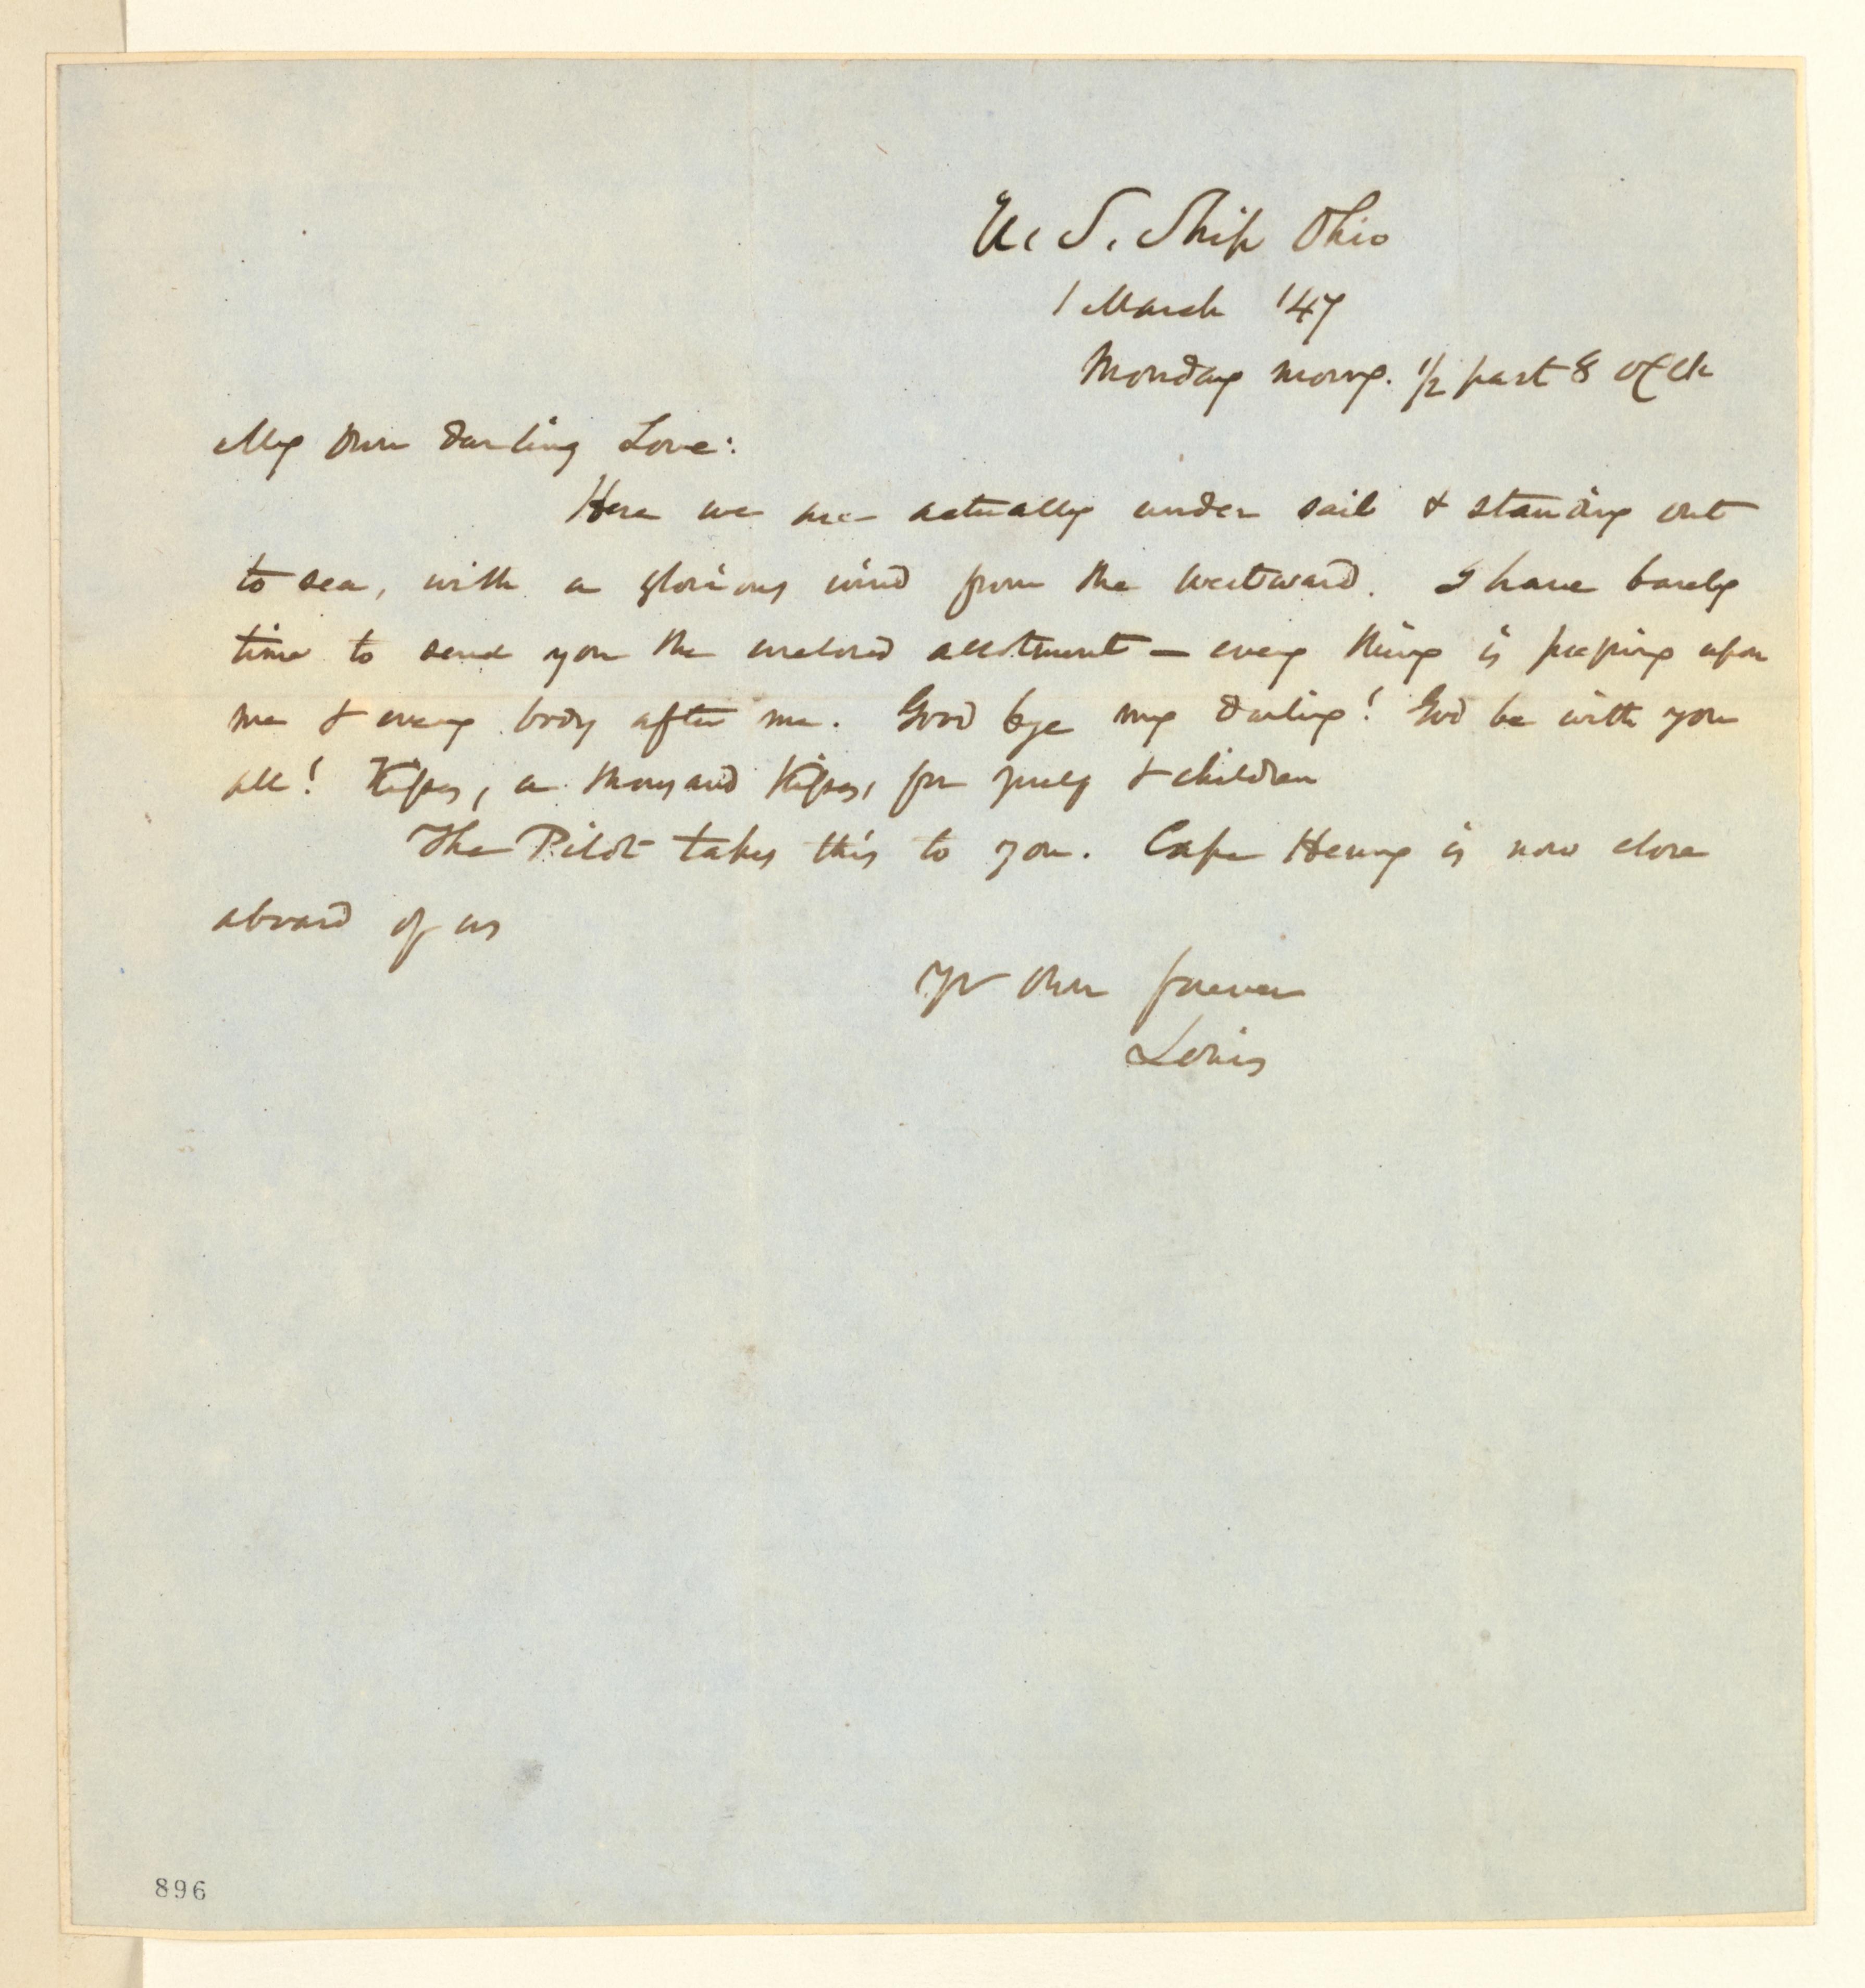 U. S. Ship Ohio
1 March '47
Monday morng. 1/2 past 8 o'Clk
My Own darling Love:
Here we are actually under sail & standing out
to sea, with a glorious wind from the westward. I have barely
time to send you the enclosed allotment — every thing is pressing upon
me & every body after me. Good bye my darling! God be with you
all! Kisses, a thousand Kisses, for yself & children
The Pilot takes this to you. Cape Henry is now close
aboard of us
Yr Own forever
Louis
896